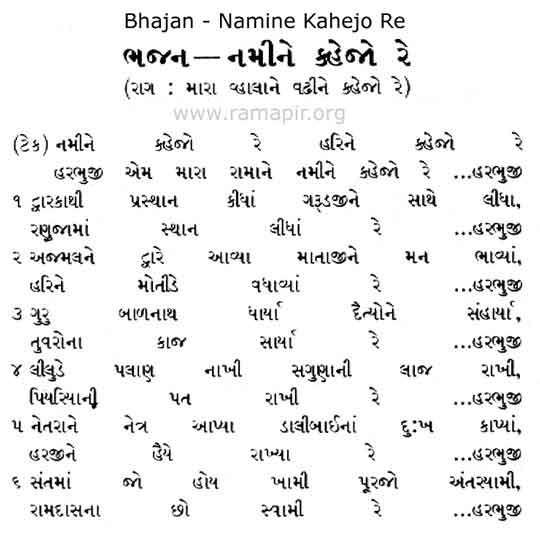 Bhajan - Namine Kahejo Re
ભજન — નમીને ક્હેજો રે
(રાગ : મારા વ્હાલાને વઢીને ક્હેજો રે)
www.ramapir.org
(ટેક) નમીને ક્હેજો રે હરિને ક્હેજો રે
હરભુજી એમ મારા રામાને નમીને ક્હેજો રે ...હરભુજી
૧ દ્વારકાથી પ્રસ્થાન કીધાં ગરૂડજીને સાથે લીધા,
રણુજામાં સ્થાન લીધાં રે ...હરભુજી
૨ અજમલને દ્વારે આવ્યા માતાજીને મન ભાવ્યાં,
હરિને મોતીડે વધાવ્યાં રે ...હરભુજી
૩ ગુરુ બાળનાથ ધાર્યા દૈત્યોને સંહાર્યા,
તુવરોના કાજ સાર્યા રે ...હરભુજી
૪ લીલુડે પલાણ નાખી સગુણાની લાજ રાખી,
પિયરિયાની પત રાખી રે ...હરભુજી
૫ નેતરાને નેત્ર આપ્યા ડાલીબાઈનાં દુઃખ કાપ્યાં,
હરજીને હૈયે રાખ્યા રે ...હરભુજી
૬ સંતમાં જો હોય ખામી પૂરજો અંતરયામી,
રામદાસના છો સ્વામી રે ...હરભુજી